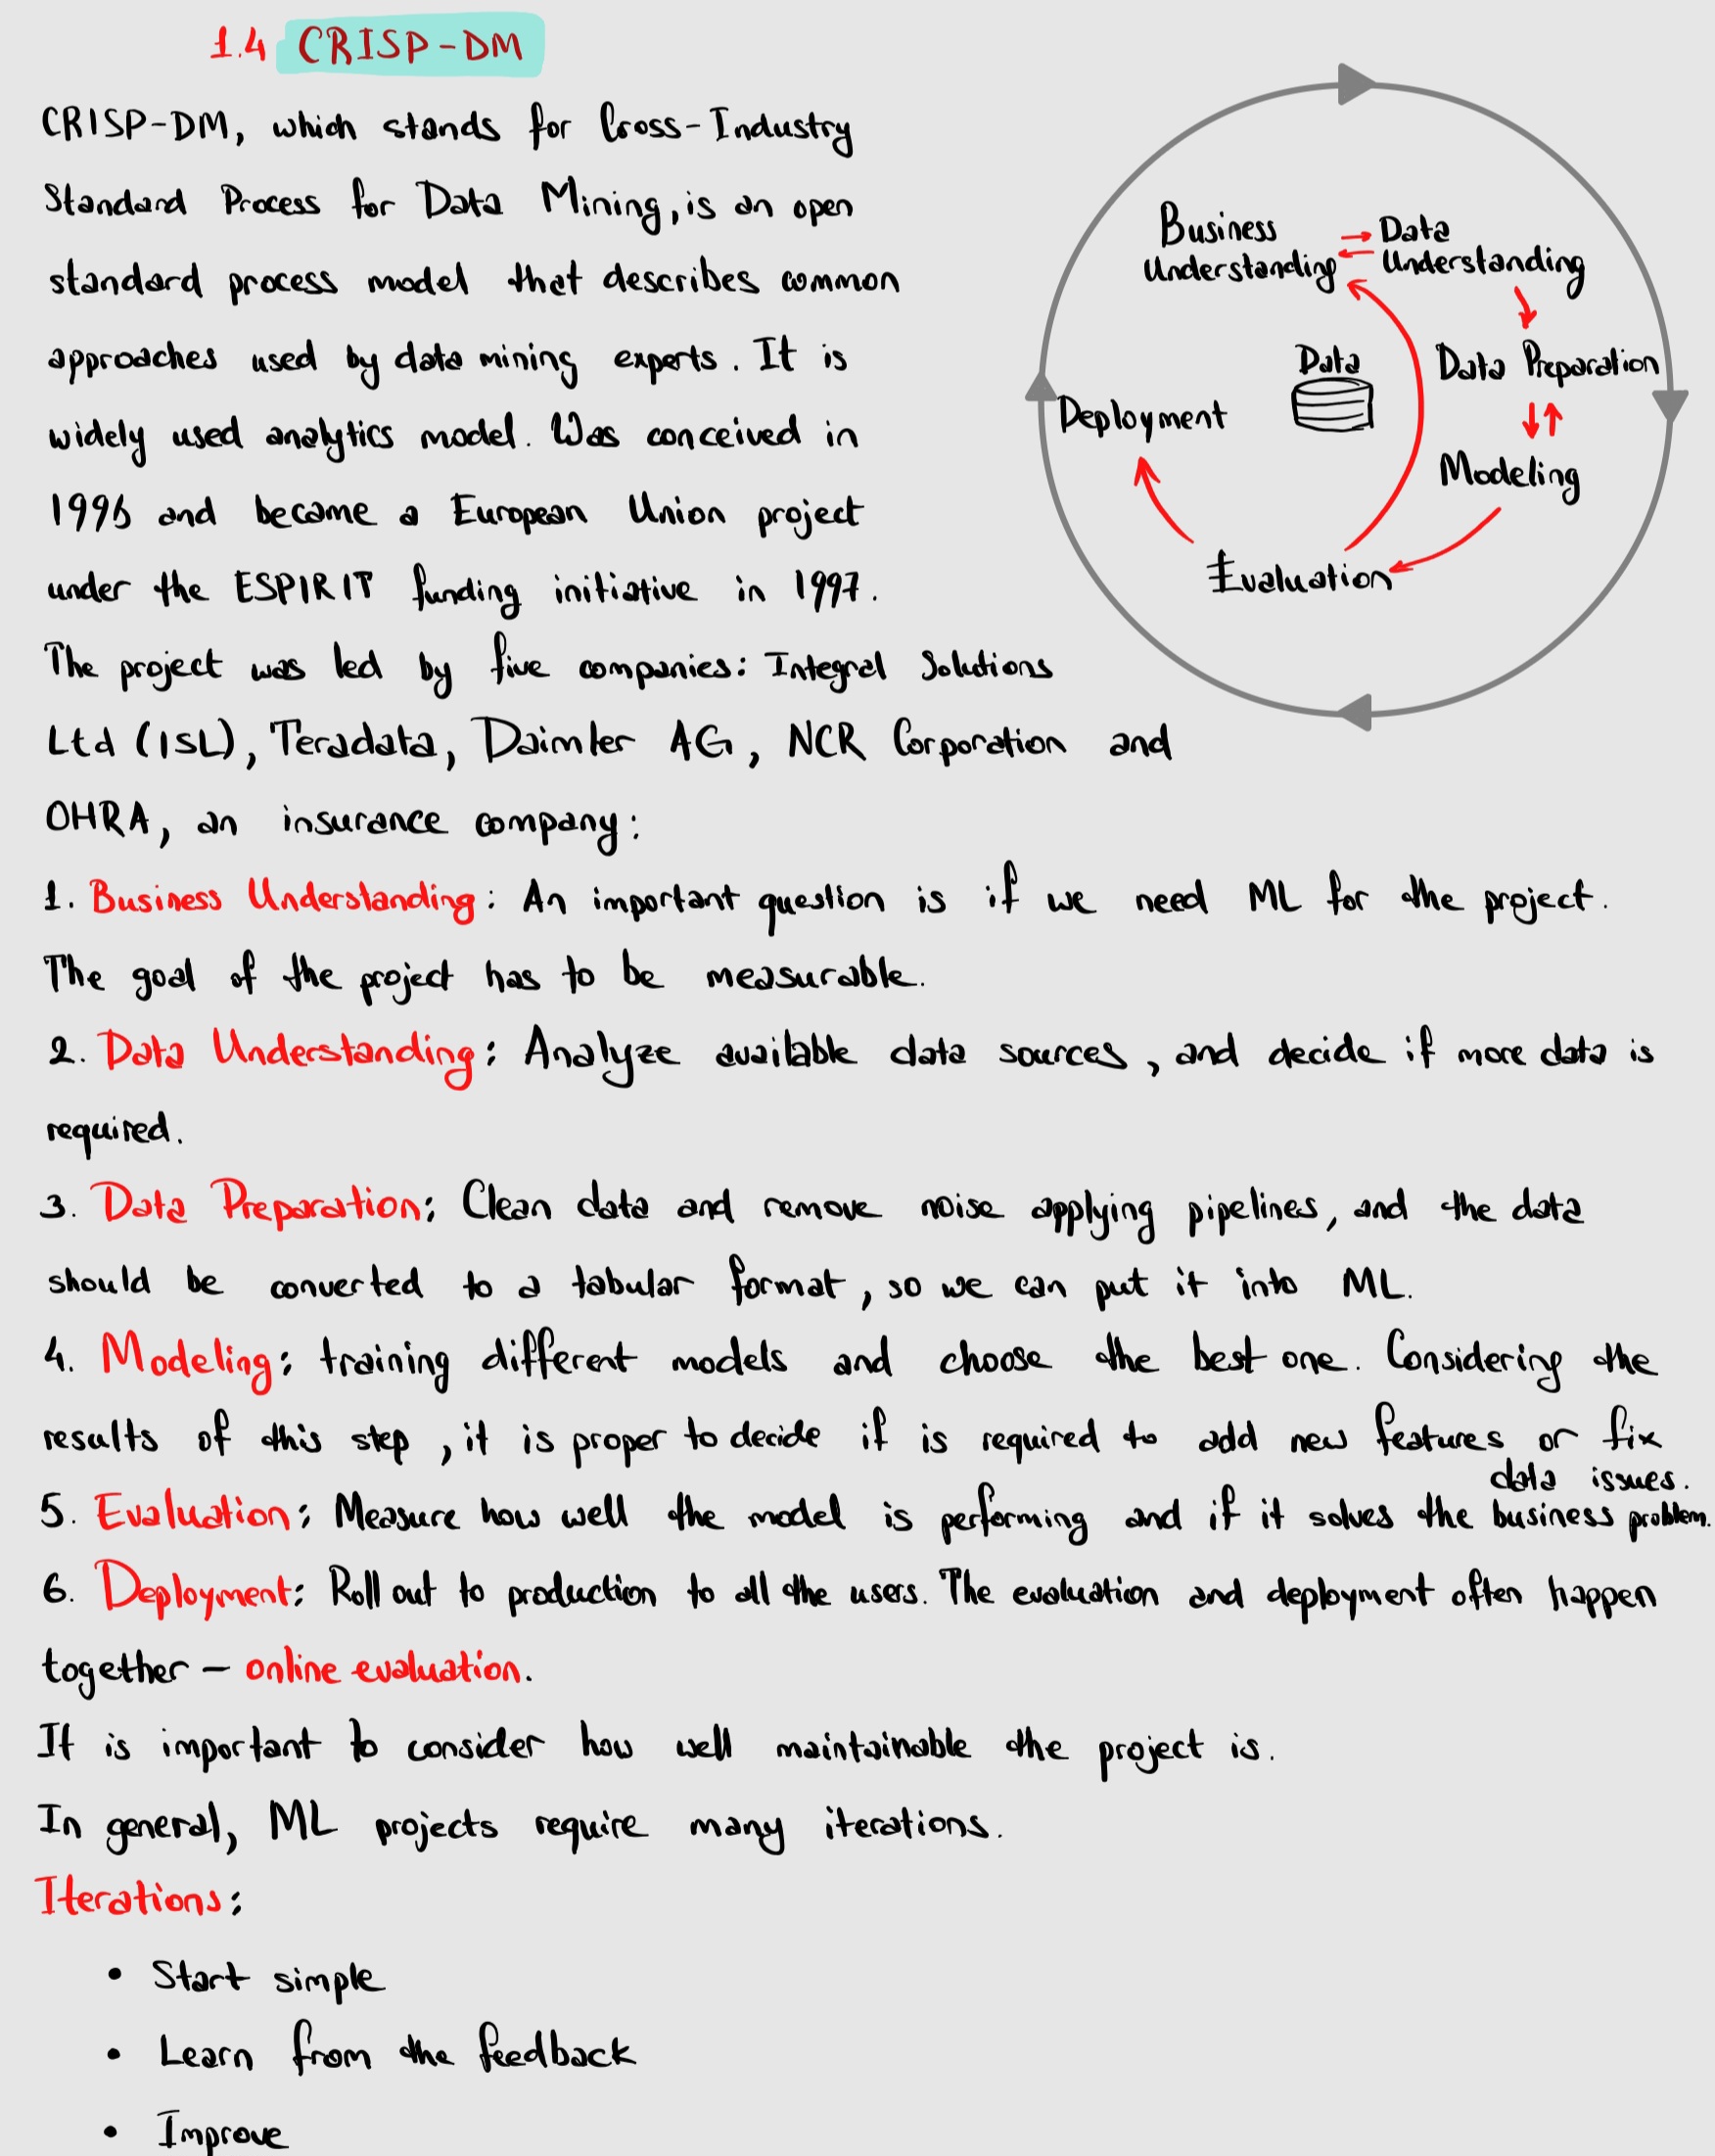 1.4 CRISP-DM
CRISP-DM, which stands for Cross-Industry
Standard Process for Data Mining, is an open
standard process model that describes common
approaches used by data mining experts. It is
widely used analytics model. Was conceived in
1996 and became a European Union project
under the ESPIRIT funding initiative in 1997.
The project was led by five companies: Integral Solutions
Ltd (ISL), Teradata, Daimler AG, NCR Corporation and
OHRA, an insurance company:
Business
Understanding
Data
Understanding
Data
Data Preparation
Deployment
Modeling
Evaluation
1. Business Understanding: An important question is if we need ML for the project.
The goal of the project has to be measurable.
2. Data Understanding: Analyze available data sources, and decide if more data is
required.
3. Data Preparation: Clean data and remove noise applying pipelines, and the data
should be converted to a tabular format, so we can put it into ML.
4. Modeling: training different models and choose the best one. Considering the
results of this step, it is proper to decide if is required to add new features or fix
data issues.
5. Evaluation: Measure how well the model is performing and if it solves the business problem.
6. Deployment: Roll out to production to all the users. The evaluation and deployment often happen
together - online evaluation.
It is important to consider how well maintainable the project is.
In general, ML projects require many iterations.
Iterations:
• Start simple
• Learn from the feedback
• Improve